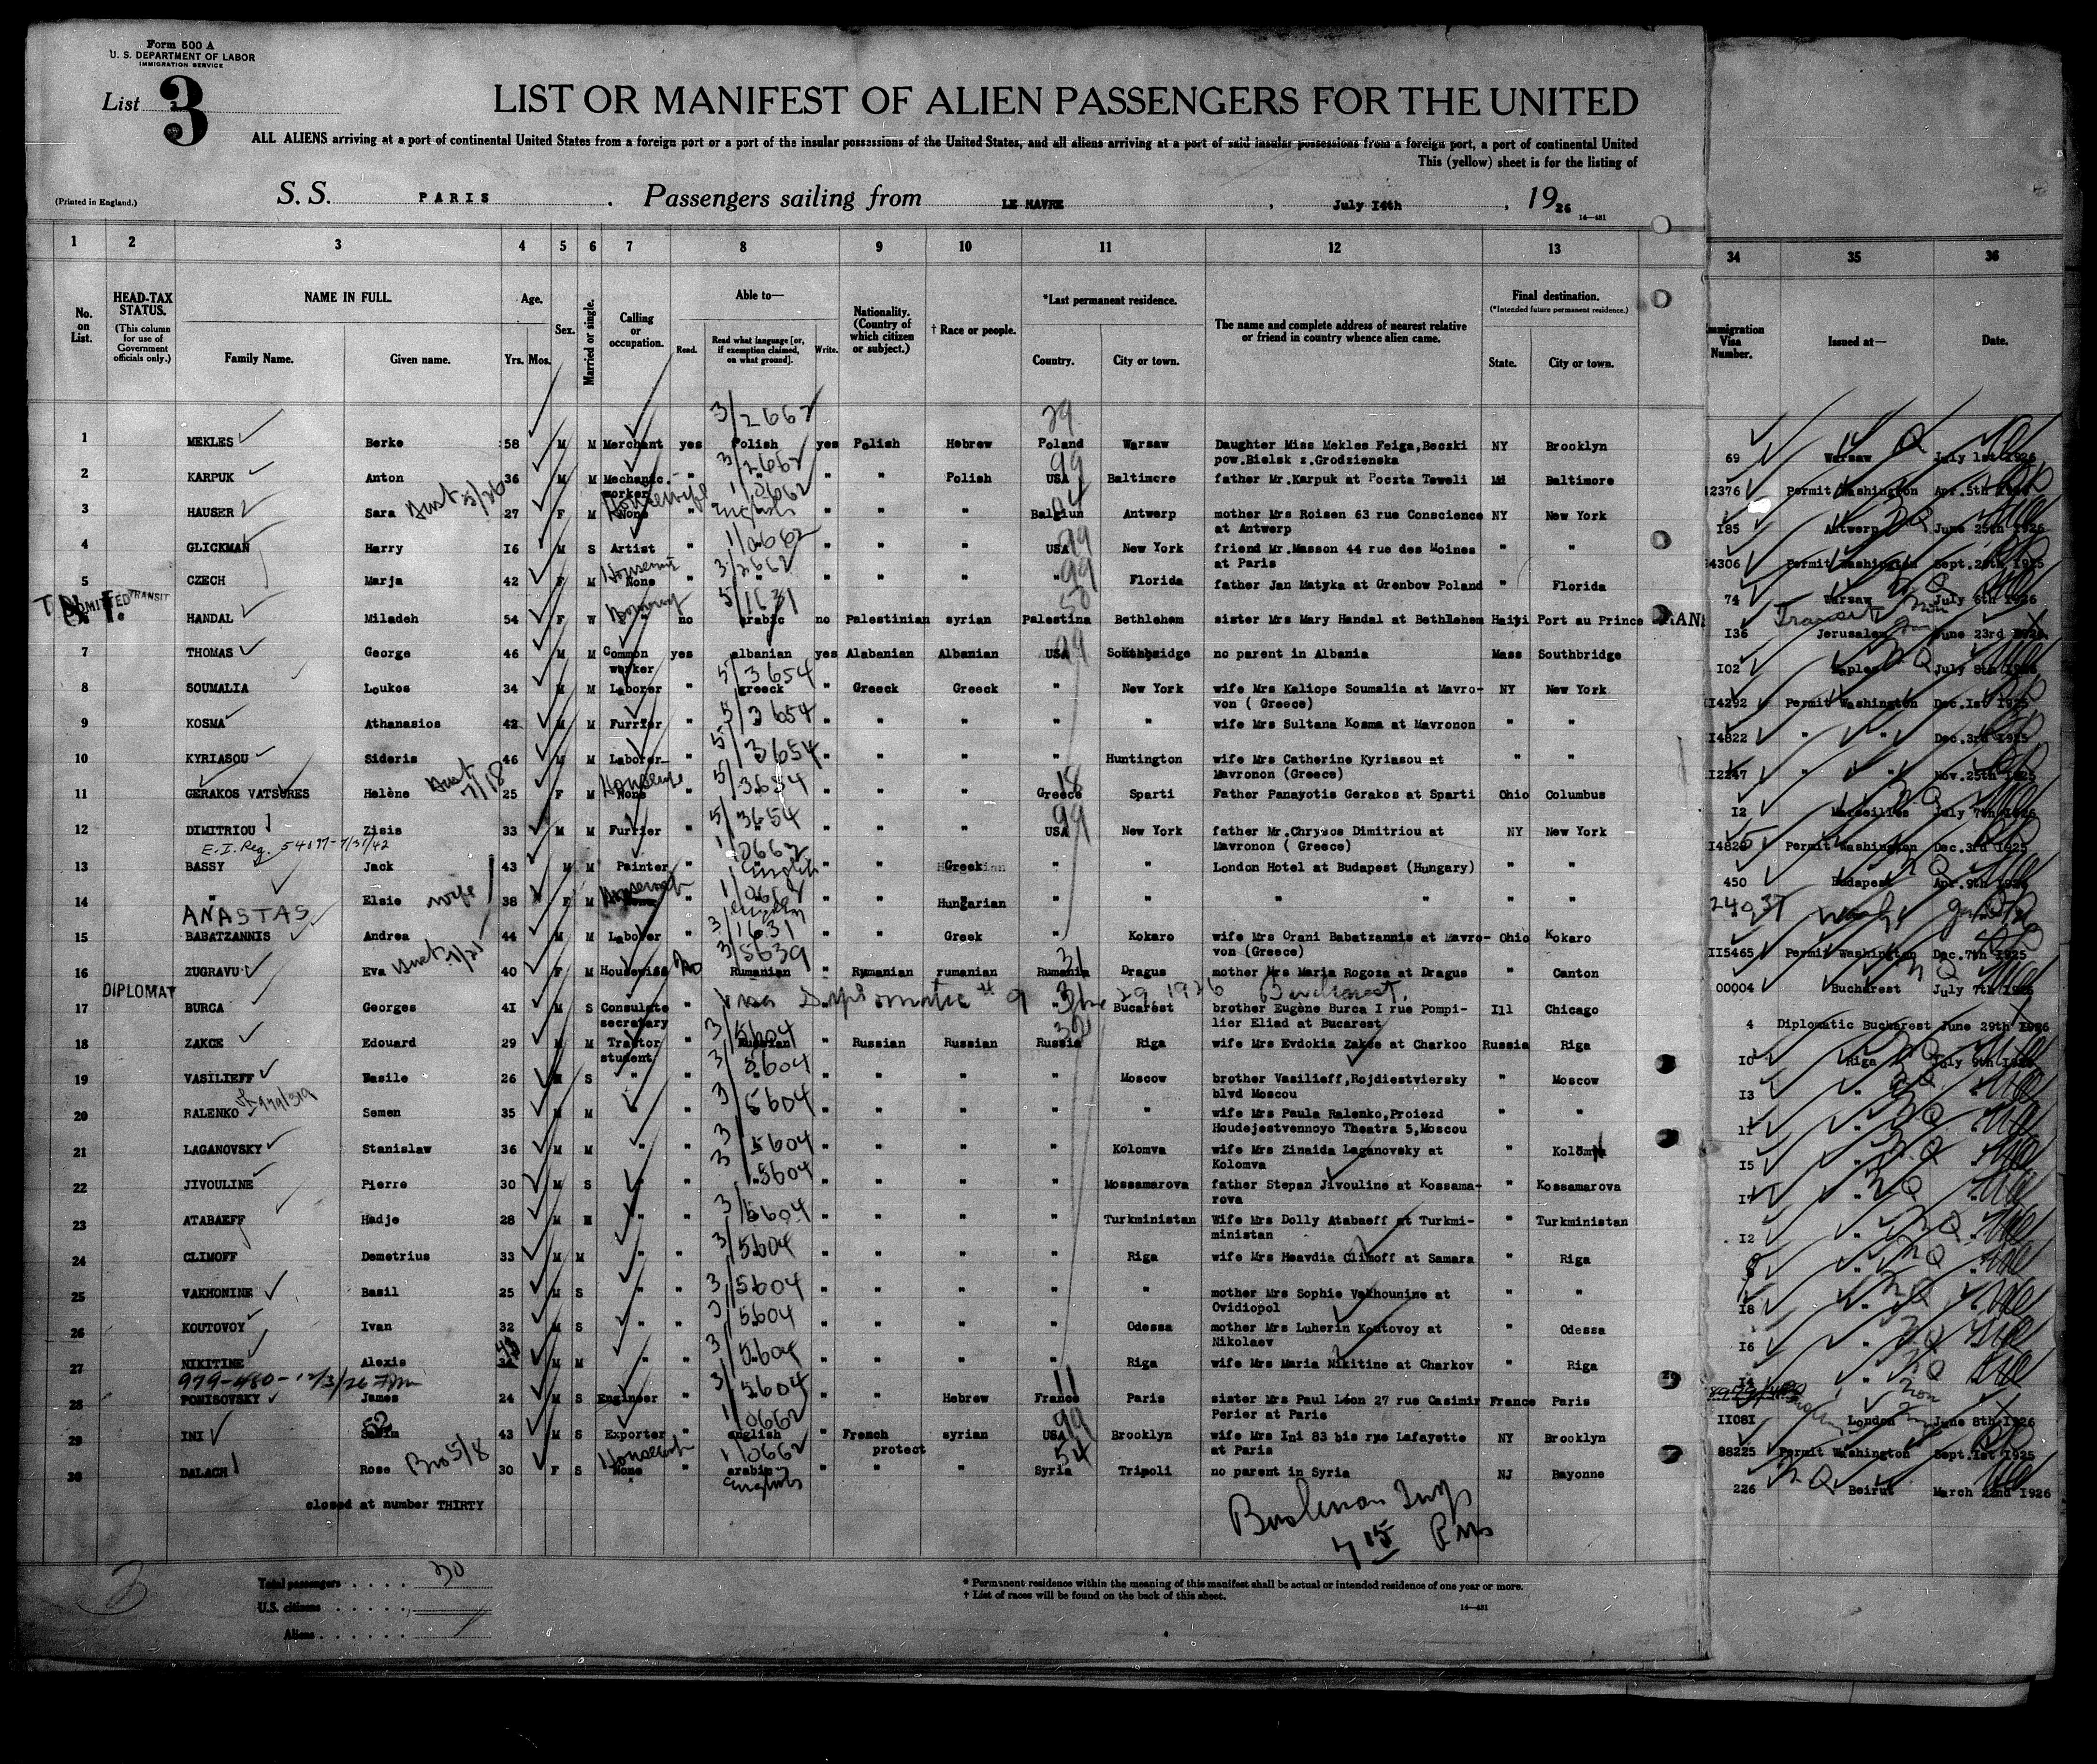 Form 500 A
U. S. DEPARTMENT OF LABOR
IMMIGRATION SERVICE
List 3
LIST OR MANIFEST OF ALIEN PASSENGERS FOR THE UNITED
ALL ALIENS arriving at a port of continental United States from a foreign port or a port of the insular possessions of the United States, and all aliens arriving at a port of said insular possessions from a foreign port, a port of continental United
This (yellow) sheet is for the listing of
(Printed in England.) S. S. PARIS . Passengers sailing from LE HAVRE , July 14th , 1926
14—481
1 2 3 4 5 6 7 8 9 10 11 12 13 34 35 36
No. on List. HEAD-TAX STATUS. (This column for use of Government officials only.) NAME IN FULL. Family Name. Given name. Age. Yrs. Mos. Sex. Married or single. Calling or occupation. Able to— Read. Read what language [or, if exemption claimed, on what ground]. Write. Nationality. (Country of which citizen or subject.) † Race or people. *Last permanent residence. Country. City or town. The name and complete address of nearest relative or friend in country whence alien came. Final destination. (*Intended future permanent residence.) State. City or town. Immigration Visa Number. Issued at— Date.
3/2662 29
1 MEKLES Berke 58 M M Merchant yes Polish yes Polish Hebrew Poland Warsaw Daughter Miss Mekles Feiga,Beczki pow.Bielsk z.Grodzienska NY Brooklyn 69 Warsaw July 1st 1926
3/2662 99
2 KARPUK Anton 36 M M Mechanic. worker " " " " Polish USA Baltimore father Mr.Karpuk at Poczta Teweli Md Baltimore 12376 Permit Washington Apr.5th
1/0662
3 HAUSER Sara 27 F M None Housewife " English " " " Belgium Antwerp mother Mrs Roisen 63 rue Conscience at Antwerp NY New York I85 Antwerp June 25th 1926
1/0662 99
4 GLICKMAN Harry I6 M S Artist " " " " " USA New York friend Mr.Masson 44 rue des Moines at Paris " " 14306 Permit Washington Sept.
3/2662 99
5 CZECH Marja 42 F M None Housewife " " " " " " Florida father Jan Matyka at Grenbow Poland " Florida 74 Warsaw July 6th 1926
ADMITTED TRANSIT
5/1631 50
HANDAL Miladeh 54 F W " no arabic no Palestinian syrian Palestina Bethlehem sister Mrs Mary Handal at Bethlehem Haiti Port au Prince I36 Transit Jerusalem June 23rd 1926
99
7 THOMAS George 46 M M Common worker yes albanian yes Alabanian Albanian USA Southbridge no parent in Albania Mass Southbridge I02 Naples July 8th
5/3654
8 SOUMALIA Loukos 34 M M Laborer " greeck " Greeck Greeck " New York wife Mrs Kaliope Soumalia at Mavro- von ( Greece) NY New York 114292 Permit Washington Dec.1st 1925
5/3654
9 KOSMA Athanasios 42 M M Furrier " " " " " " " wife Mrs Sultana Kosma at Mavronon " " I4822 " " Dec.3rd 1925
5/3654
10 KYRIASOU Sideris 46 M M Laborer " " " " " " Huntington wife Mrs Catherine Kyriasou at Mavronon (Greece) " " I2247 " " Nov.25th 1925
5/3654 18
11 GERAKOS VATSURES Helène 25 F M None Housewife " " " " " Greece Sparti Father Panayotis Gerakos at Sparti Ohio Columbus I2 Marseilles July 7th 1926
5/3654 99
12 DIMITRIOU Zisis 33 M M Furrier " " " " " USA New York father Mr.Chrysos Dimitriou at Mavronon ( Greece) NY New York I4825 Permit Washington Dec.3rd 1925
E.I. Reg. 54077-7/31/42
1/0662
13 BASSY Jack 43 M M Painter " English " " Greek " " London Hotel at Budapest (Hungary) " " 450 Budapest Apr.9th 1926
1/0662
14 " Elsie wife 38 F M Housewife " English " " Hungarian " " " " " " 24037
ANASTAS
3/1631
15 BABATZANNIS Andrea 44 M M Laborer " " " " Greek " Kokaro wife Mrs Orani Babatzannis at Mavro- von (Greece) Ohio Kokaro II5465 Permit Washington Dec.7th 1925
3/5639 31
16 ZUGRAVU Eva 40 F M Housewife No Rumanian " Rumanian rumanian Rumania Dragus mother Mrs Maria Rogoza at Dragus " Canton 00004 Bucharest July 7th
DIPLOMAT
17 BURCA Georges 4I M S Consulate secretary " Visa Diplomatic # 9 June 29 1926 Bucharest. " Bucarest brother Eugène Burca I rue Pompi- lier Eliad at Bucarest Ill Chicago 4 Diplomatic Bucharest June 29th 1926
3/5604 32
18 ZAKCE Edouard 29 M M Traktor student " Russian " Russian Russian Russia Riga wife Mrs Evdokia Zakce at Charkoo Russia Riga I0 Riga July 9th 1926
3/5604
19 VASILIEFF Basile 26 M S " " " " " " " Moscow brother Vasilieff,Rojdiestviersky blvd Moscou " Moscow I3
3/5604
20 RALENKO Semen 35 M M " " " " " " " " wife Mrs Paula Ralenko,Proiezd Houdejestvennoyo Theatra 5,Moscou " " 11
3/5604
21 LAGANOVSKY Stanislaw 36 M M " " " " " " " Kolomva wife Mrs Zinaida Laganovsky at Kolomva " Kolomva I5
3/5604
22 JIVOULINE Pierre 30 M S " " " " " " " Mossamarova father Stepan Jivouline at Kossama- rova " Kossamarova I7
3/5604
23 ATABAEFF Hadje 28 M M " " " " " " " Turkministan Wife Mrs Dolly Atabaeff at Turkmi- ministan " Turkministan I2
3/5604
24 CLIMOFF Demetrius 33 M M " " " " " " " Riga wife Mrs Heavdia Climoff at Samara " Riga
3/5604
25 VAKHONINE Basil 25 M S " " " " " " " " mother Mrs Sophie Vakhounine at Ovidiopol " " I8
3/5604
26 KOUTOVOY Ivan 32 M S " " " " " " " Odessa mother Mrs Luherin Koutovoy at Nikolaev " Odessa I6
3/5604
27 NIKITINE Alexis M M " " " " " " " Riga wife Mrs Maria Nikitine at Charkov " Riga I4
979-480-12/3/26
3/5604 11
28 PONISOVSKY James 24 M S Engineer " " " " Hebrew France Paris sister Mrs Paul Léon 27 rue Casimir Perier at Paris France Paris II08I London June 8th 1926
1/0662 99
29 INI 43 M S Exporter " english " French protect syrian USA Brooklyn wife Mrs Ini 83 bis rue Lafayette at Paris NY Brooklyn 88225 Permit Washington Sept.1st 1925
1/0662 54
30 DALACH Rose Bro 5/8 30 F S None Housewife " arabic English " " " Syria Tripoli no parent in Syria NJ Bayonne 226 Beirut March 22nd 1926
closed at number THIRTY
Total passengers . . . . 30
U.S. citizens . . . . .
Aliens . . . . . .
* Permanent residence within the meaning of this manifest shall be actual or intended residence of one year or more.
† List of races will be found on the back of this sheet.
14—481